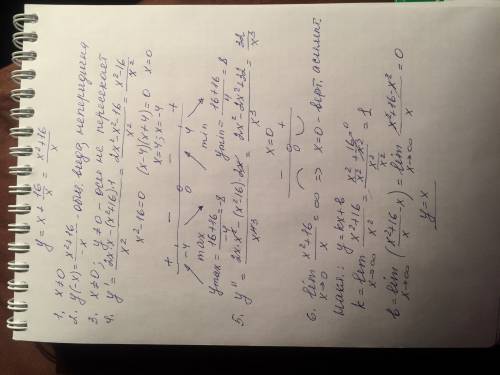 y = x + 16/x = (x²+16)/x
1. x≠0
2. y(-x) = (x²+16)/(-x) - общ. вида, непериодична
3. x≠0; y≠0 - осей не пересекает
4. y' = (2x·x-(x²+16)·1)/x² = (2x²-x²-16)/x² = (x²-16)/x²
x²-16=0 (x-4)(x+4)=0 x=0
x=4; x=-4
+ - - +
-4 0 4
max min
ymax = (16+16)/(-4) = -8 ymin = (16+16)/4 = 8
5. y'' = (2x·x²-(x²-16)·2x)/x⁴ = (2x²-2x²+32)/x³ = 32/x³
x=0
- +
0
6. lim x→0 (x²+16)/x = ∞ ⇒ x=0 - верт. асимпт.
накл.: y=kx+b
k = lim x→∞ (x²+16)/x² = (x²/x² + 16/x²)/(x²/x²) = 1
b = lim x→∞ ((x²+16)/x - x) = lim x→∞ (x²+16-x²)/x = 0
y=x